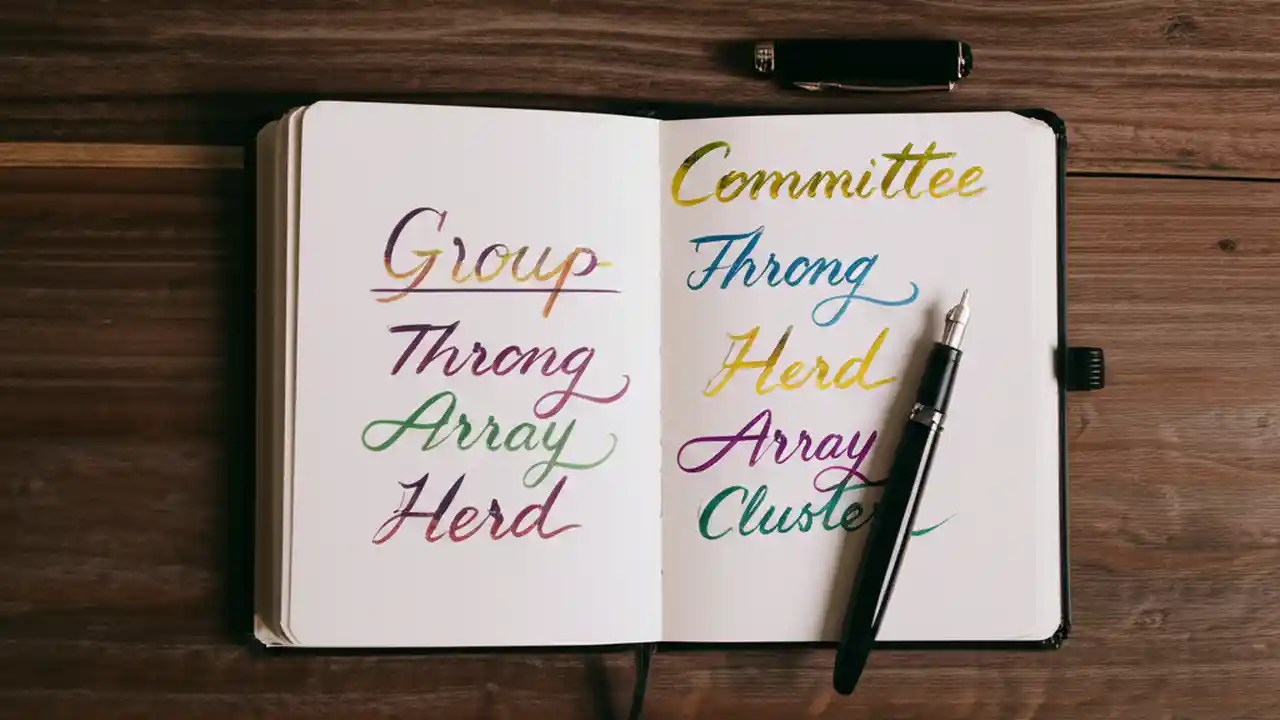 Group
Throng
Array
Herd
Committee
Throng
Herd
Array
Cluster